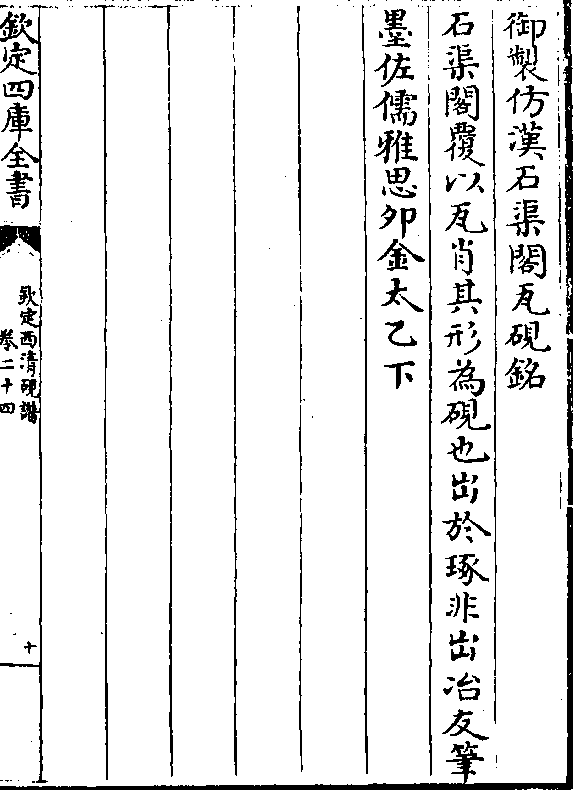 御製仿漢石渠閣瓦硯銘
石渠閣覆以瓦肖其形為硯也出於琢非出冶友筆
墨佐儒雅思夘金太乙下
欽定四庫全書
欽定西清硯譜
卷二十四
十